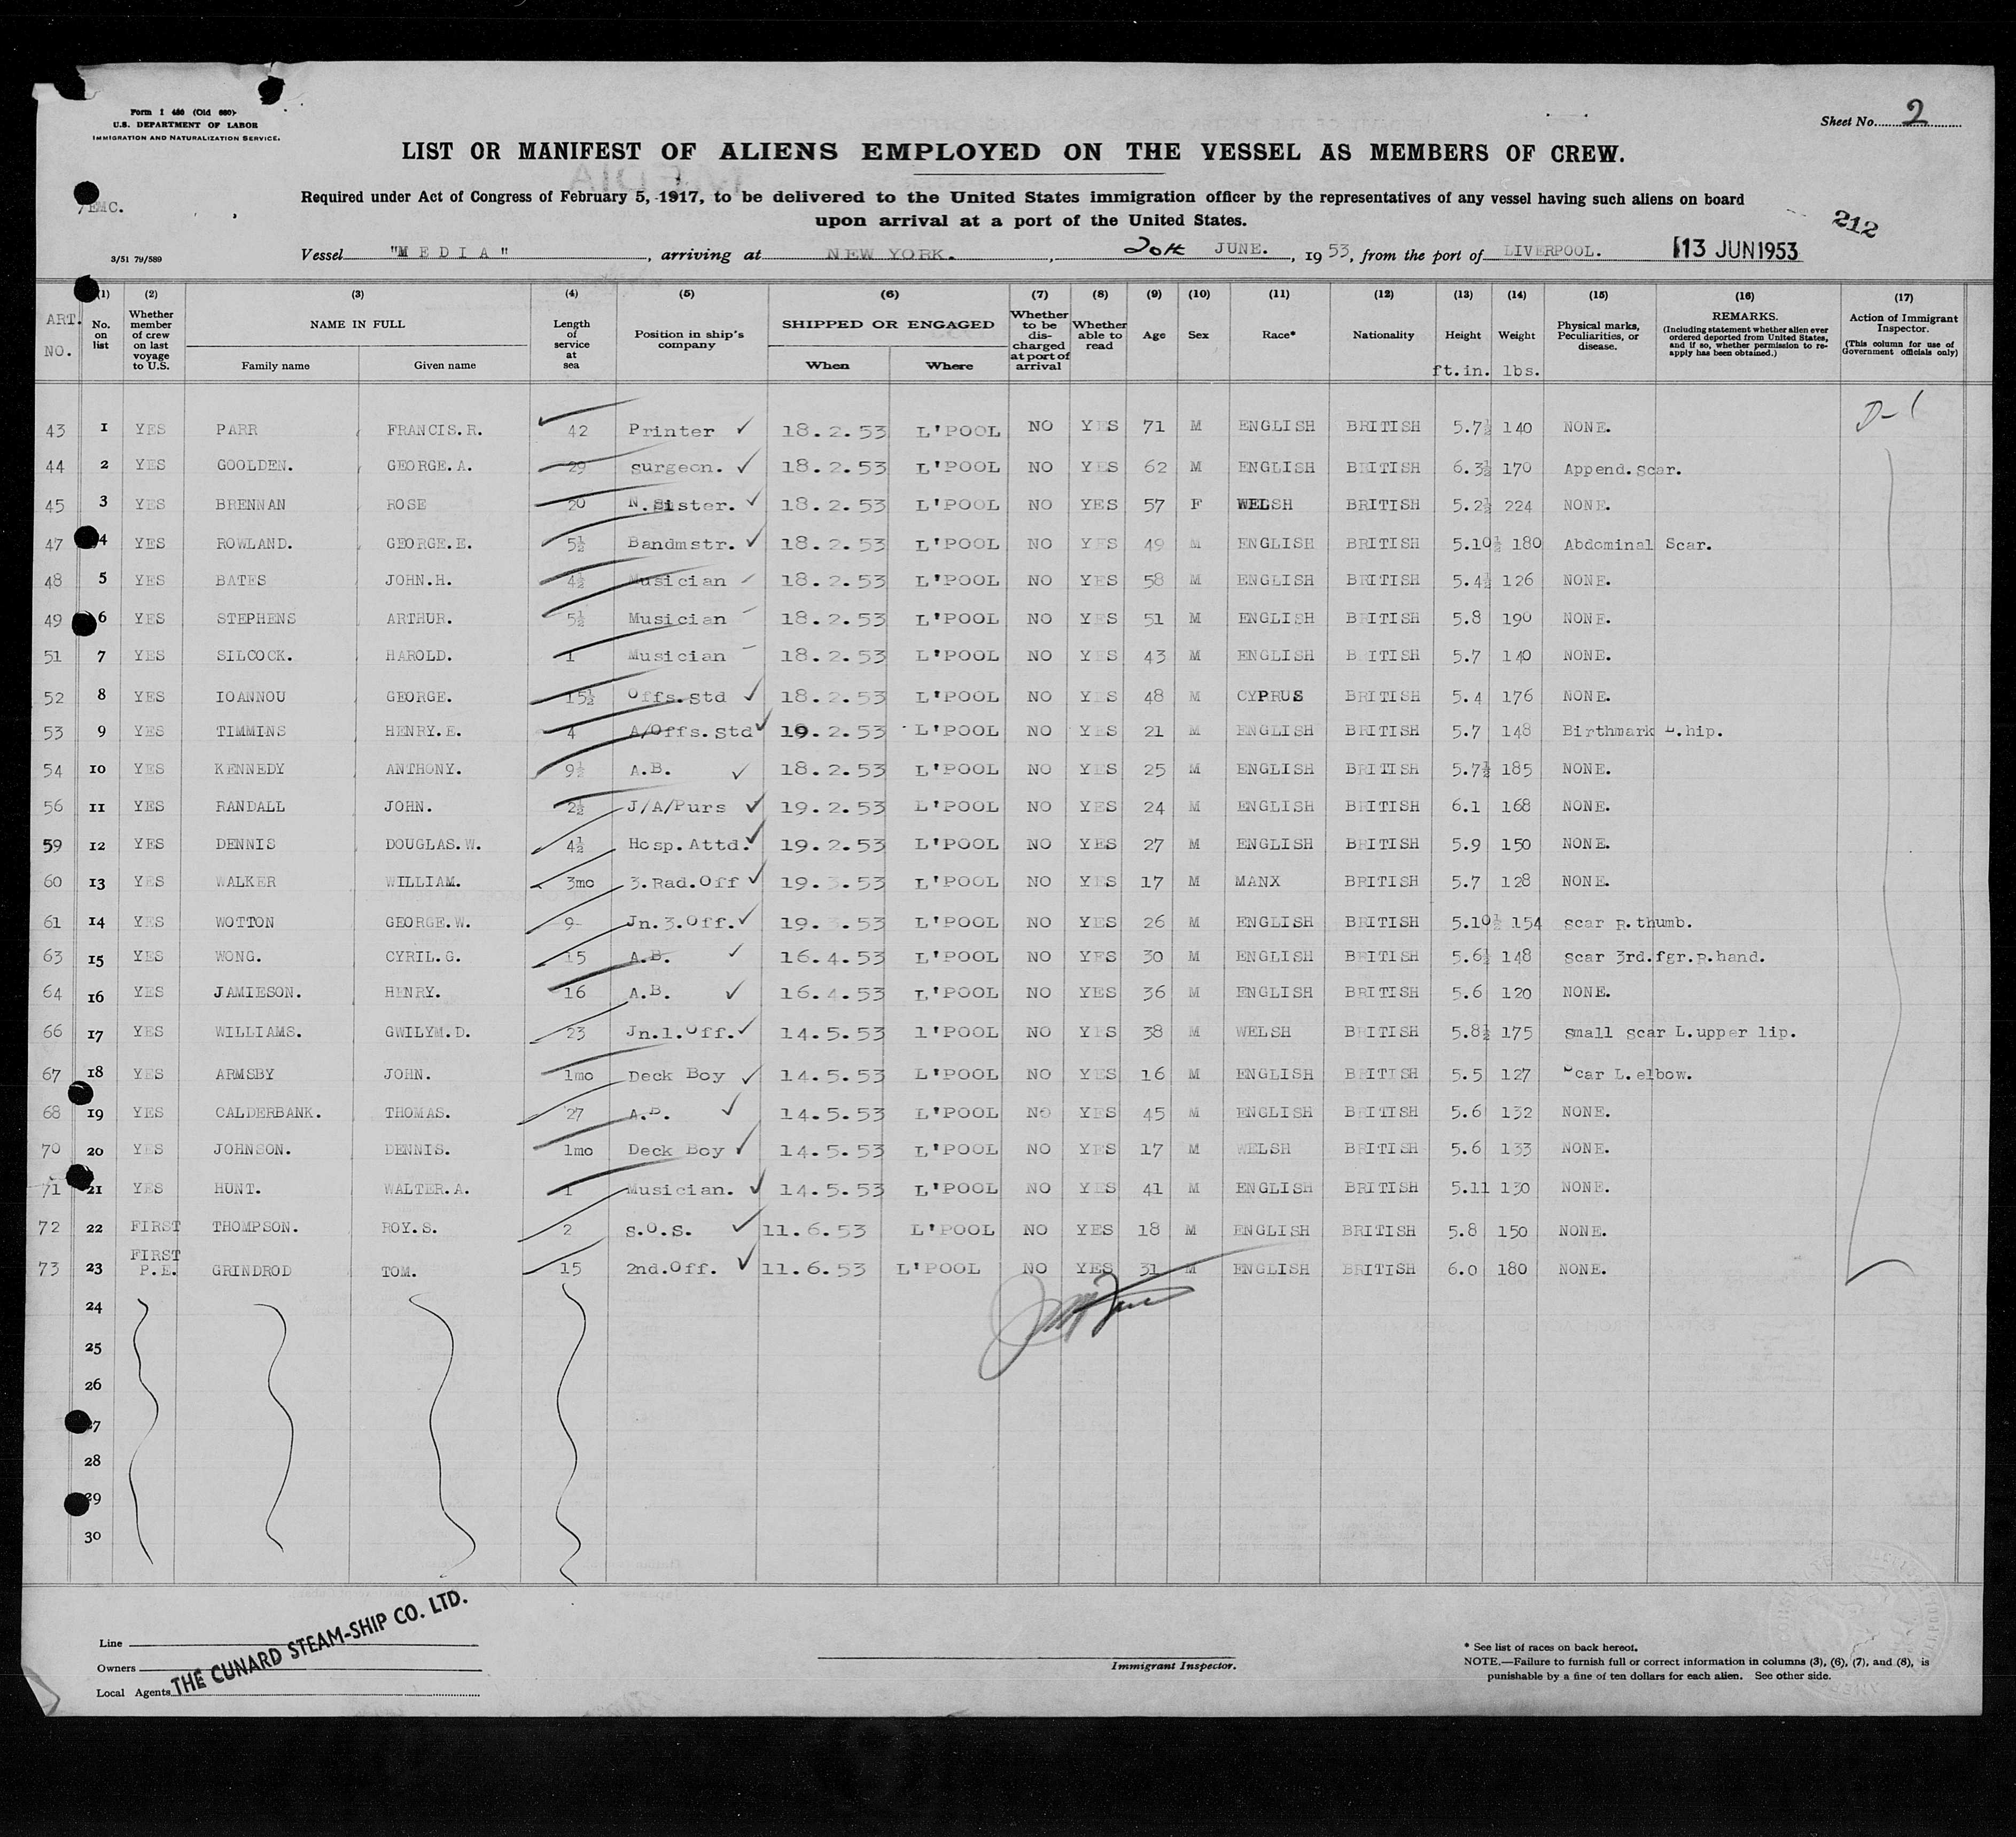 Form I 480 (Old 680)
U.S. DEPARTMENT OF LABOR
IMMIGRATION AND NATURALIZATION SERVICE.
Sheet No. 2
LIST OR MANIFEST OF ALIENS EMPLOYED ON THE VESSEL AS MEMBERS OF CREW.
Required under Act of Congress of February 5, 1917, to be delivered to the United States immigration officer by the representatives of any vessel having such aliens on board
upon arrival at a port of the United States.
/EMC.
212
3/51 79/589
Vessel "MEDIA", arriving at NEW YORK., 20th JUNE., 1953, from the port of LIVERPOOL. 13 JUN 1953
ART. NO. (1) No. on list (2) Whether member of crew on last voyage to U.S. (3) NAME IN FULL Family name Given name (4) Length of service at sea (5) Position in ship's company (6) SHIPPED OR ENGAGED When Where (7) Whether to be discharged at port of arrival (8) Whether able to read (9) Age (10) Sex (11) Race* (12) Nationality (13) Height ft.in. (14) Weight lbs. (15) Physical marks, Peculiarities, or disease. (16) REMARKS. (Including statement whether alien ever ordered deported from United States, and if so, whether permission to re-apply has been obtained.) (17) Action of Immigrant Inspector. (This column for use of Government officials only)
43 1 YES PARR FRANCIS.R. 42 Printer 18.2.53 L'POOL NO YES 71 M ENGLISH BRITISH 5.7½ 140 NONE.
44 2 YES GOOLDEN. GEORGE.A. 29 surgeon. 18.2.53 L'POOL NO YES 62 M ENGLISH BRITISH 6.3½ 170 Append.scar.
45 3 YES BRENNAN ROSE 20 N.Sister. 18.2.53 L'POOL NO YES 57 F WELSH BRITISH 5.2½ 224 NONE.
47 4 YES ROWLAND. GEORGE.E. 5½ Bandmstr. 18.2.53 L'POOL NO YES 49 M ENGLISH BRITISH 5.10½ 180 Abdominal Scar.
48 5 YES BATES JOHN.H. 4½ Musician 18.2.53 L'POOL NO YES 58 M ENGLISH BRITISH 5.4½ 126 NONE.
49 6 YES STEPHENS ARTHUR. 5½ Musician 18.2.53 L'POOL NO YES 51 M ENGLISH BRITISH 5.8 190 NONE.
51 7 YES SILCOCK. HAROLD. 1 Musician 18.2.53 L'POOL NO YES 43 M ENGLISH BRITISH 5.7 140 NONE.
52 8 YES IOANNOU GEORGE. 15½ Offs.Std 18.2.53 L'POOL NO YES 48 M CYPRUS BRITISH 5.4 176 NONE.
53 9 YES TIMMINS HENRY.E. 4 A/Offs.Std 19.2.53 L'POOL NO YES 21 M ENGLISH BRITISH 5.7 148 Birthmark L.hip.
54 10 YES KENNEDY ANTHONY. 9½ A.B. 18.2.53 L'POOL NO YES 25 M ENGLISH BRITISH 5.7½ 185 NONE.
56 11 YES RANDALL JOHN. 2½ J/A/Purs 19.2.53 L'POOL NO YES 24 M ENGLISH BRITISH 6.1 168 NONE.
59 12 YES DENNIS DOUGLAS.W. 4½ Hosp.Attd. 19.2.53 L'POOL NO YES 27 M ENGLISH BRITISH 5.9 150 NONE.
60 13 YES WALKER WILLIAM. 3mo 3.Rad.Off 19.3.53 L'POOL NO YES 17 M MANX BRITISH 5.7 128 NONE.
61 14 YES WOTTON GEORGE.W. 9 Jn.3.Off. 19.3.53 L'POOL NO YES 26 M ENGLISH BRITISH 5.10½ 154 scar R.thumb.
63 15 YES WONG. CYRIL.G. 15 A.B. 16.4.53 L'POOL NO YES 30 M ENGLISH BRITISH 5.6½ 148 scar 3rd.fgr.R.hand.
64 16 YES JAMIESON. HENRY. 16 A.B. 16.4.53 L'POOL NO YES 36 M ENGLISH BRITISH 5.6 120 NONE.
66 17 YES WILLIAMS. GWILYM.D. 23 Jn.1.Off. 14.5.53 l'POOL NO YES 38 M WELSH BRITISH 5.8½ 175 small scar L.upper lip.
67 18 YES ARMSBY JOHN. 1mo Deck Boy 14.5.53 L'POOL NO YES 16 M ENGLISH BRITISH 5.5 127 Scar L.elbow.
68 19 YES CALDERBANK. THOMAS. 27 A.B. 14.5.53 L'POOL NO YES 45 M ENGLISH BRITISH 5.6 132 NONE.
70 20 YES JOHNSON. DENNIS. 1mo Deck Boy 14.5.53 L'POOL NO YES 17 M WELSH BRITISH 5.6 133 NONE.
71 21 YES HUNT. WALTER.A. 1 Musician. 14.5.53 L'POOL NO YES 41 M ENGLISH BRITISH 5.11 130 NONE.
72 22 FIRST THOMPSON. ROY.S. 2 S.O.S. 11.6.53 L'POOL NO YES 18 M ENGLISH BRITISH 5.8 150 NONE.
73 23 FIRST P.E. GRINDROD TOM. 15 2nd.Off. 11.6.53 L'POOL NO YES 31 M ENGLISH BRITISH 6.0 180 NONE.
24
25
26
27
28
29
30
Line
Owners
Local Agents
THE CUNARD STEAM-SHIP CO. LTD.
Immigrant Inspector.
* See list of races on back hereof.
NOTE.—Failure to furnish full or correct information in columns (3), (6), (7), and (8), is
punishable by a fine of ten dollars for each alien. See other side.